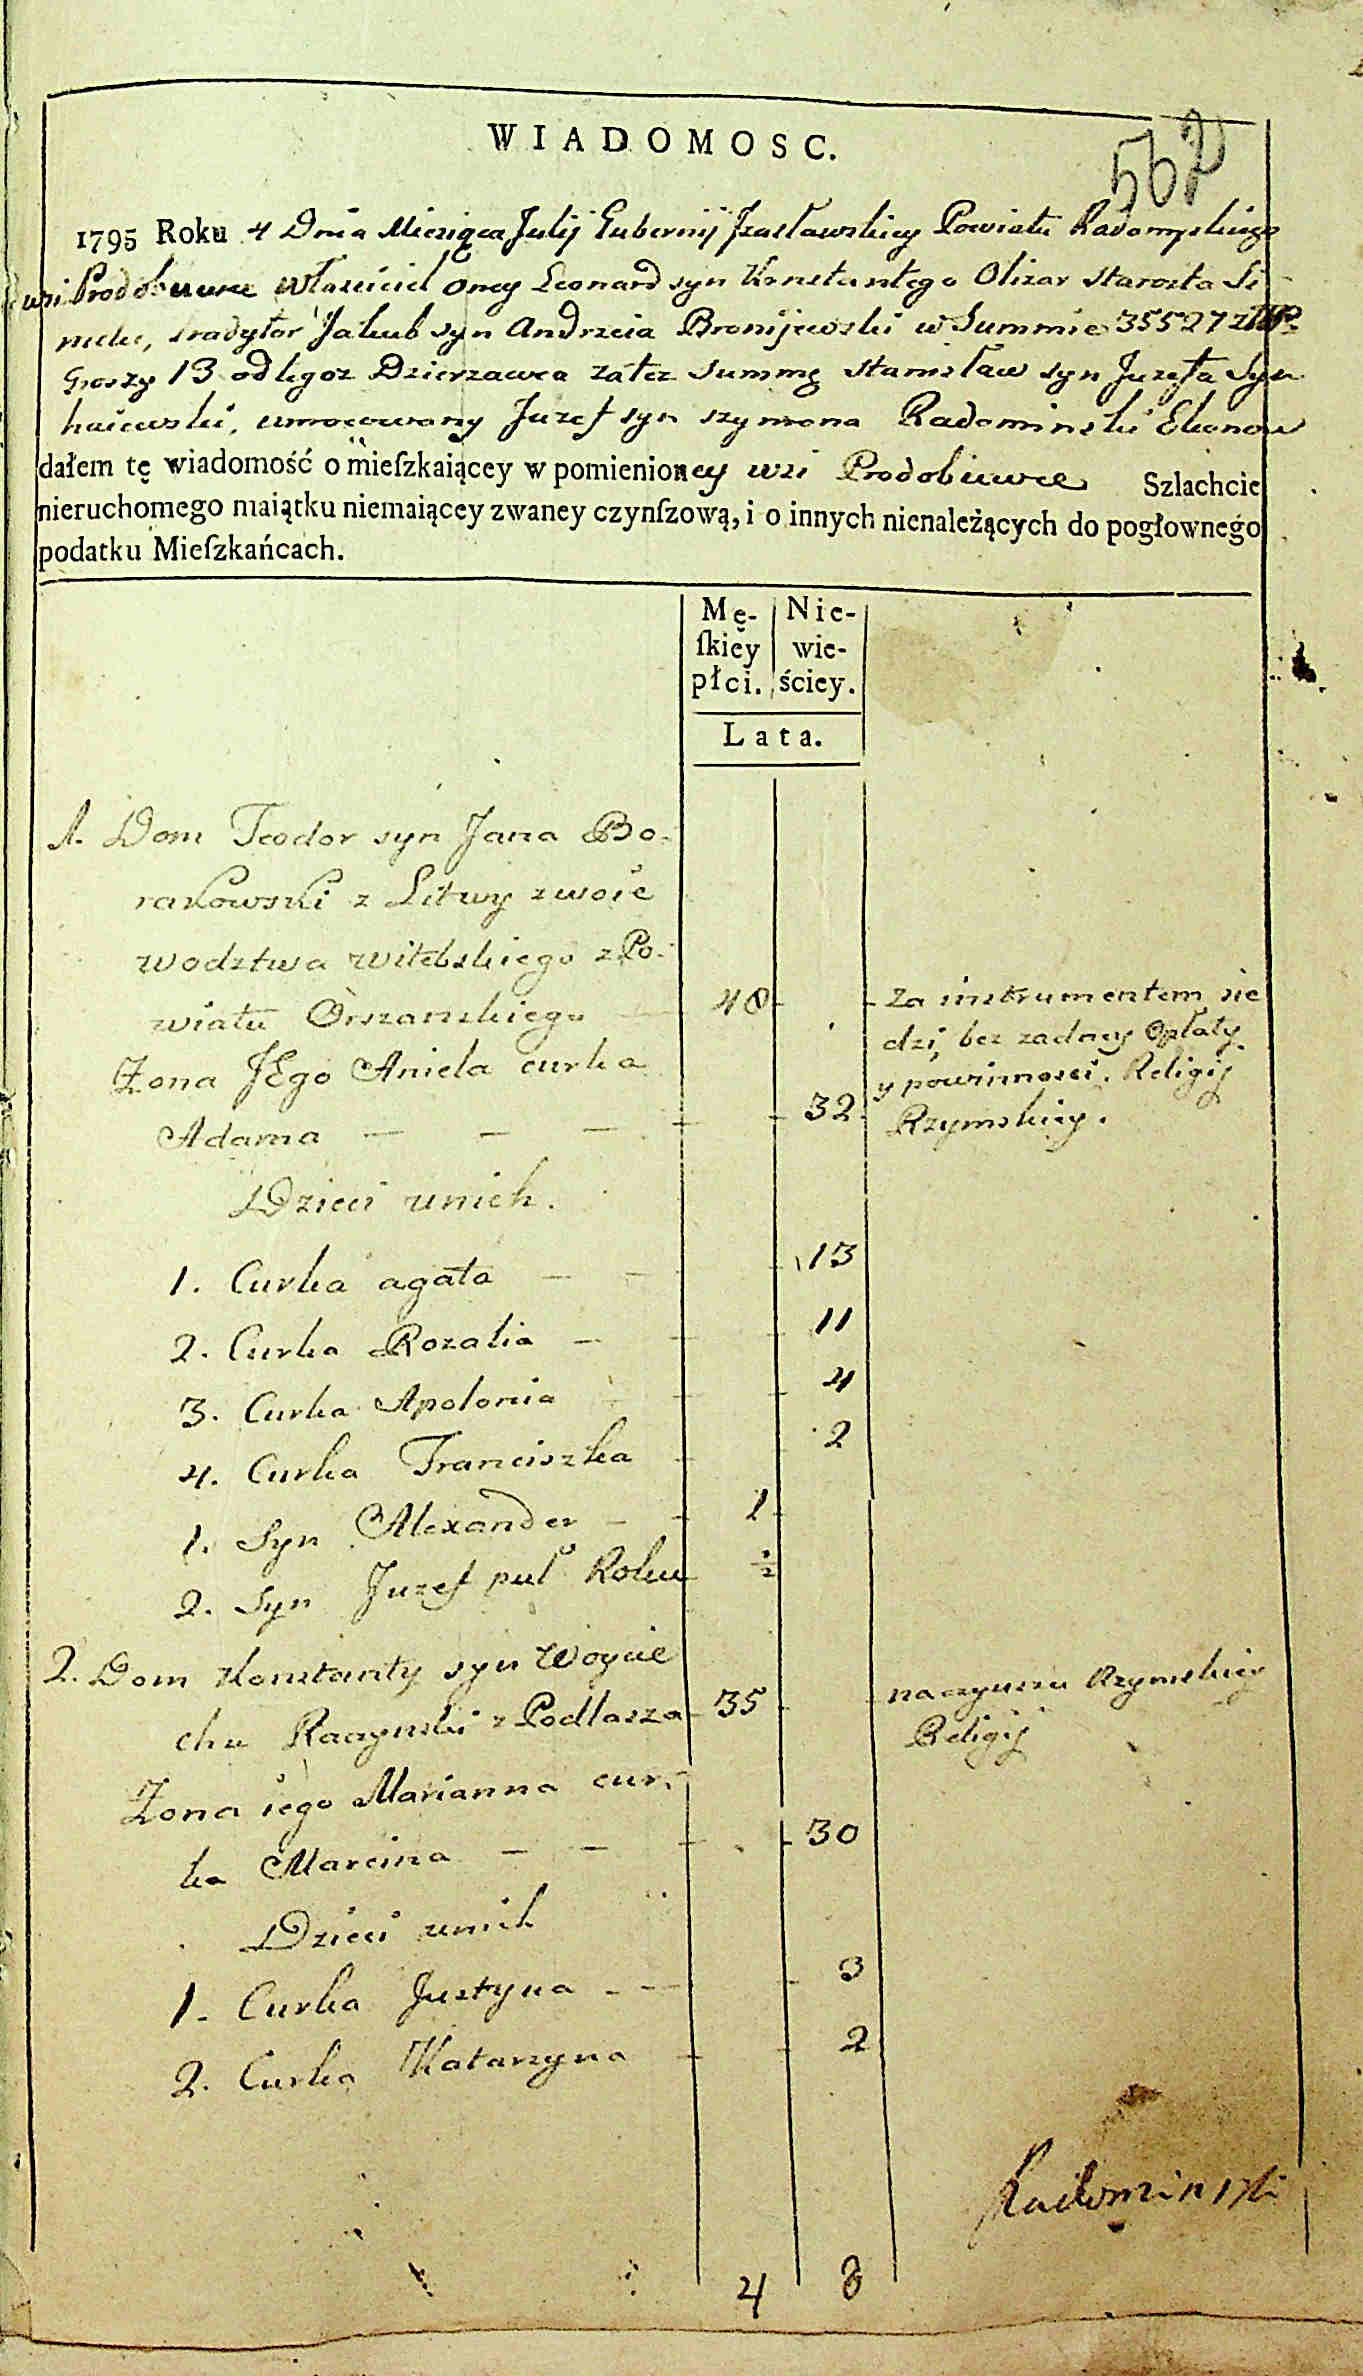 WIADOMOSC.
562
1795 Roku 4 Dnia Miesiąca Julij Gubernij Jzasławskiey Powiatu Radomyskiego
wsi Produbiuwce Własciciel oney Leonard syn Konstantego Olizar Starosta Si
nicki, tradytor Jakub syn Andrzeia Bronijewski w Summie 35527 złłP.
Groszy 13 od tegoz Dzierzawca za tez Summę Stanisław syn Juzefa Syn
haiewski, umocowany Juzef syn Szymona Radominski Ekonom
dałem tę wiadomość o mieſzkaiącey w pomienioney wsi Prodobiuwce Szlachcie
nieruchomego maiątku niemaiącey zwaney czynſzową, i o innych nienależących do pogłownego
podatku Mieſzkańcach.
Mę- Nie-
ſkiey wie-
płci. ściey.
Lata.
1. Dom Teodor syn Jana Bo-
rakowski z Litwy z woie
wodztwa witebskiego z Po-
wiatu Orszanskiego — 48 Za instrumentem sie
dzi, bez zadney Opłaty
Zona JEgo Aniela curka y powinnosci. Religij
Adama — — — 32 Rzymskiey.
Dzieci unich.
1. Curka agata — — 13
2. Curka Rozalia — 11
3. Curka Apolonia 4
4. Curka Franciszka 2
1. Syn Alexander — 1
2. Syn Juzef puł Roku ½
2. Dom Konstanty syn Woycie
cha Raczynski z Podlasza 35 na czynszu Rzymskiey
Religij
Zona iego Marianna cur-
ka Marcina — — 30
Dzieci unich
1. Curka Justyna — — 3
2. Curka Katarzyna 2
Radominski
4 8